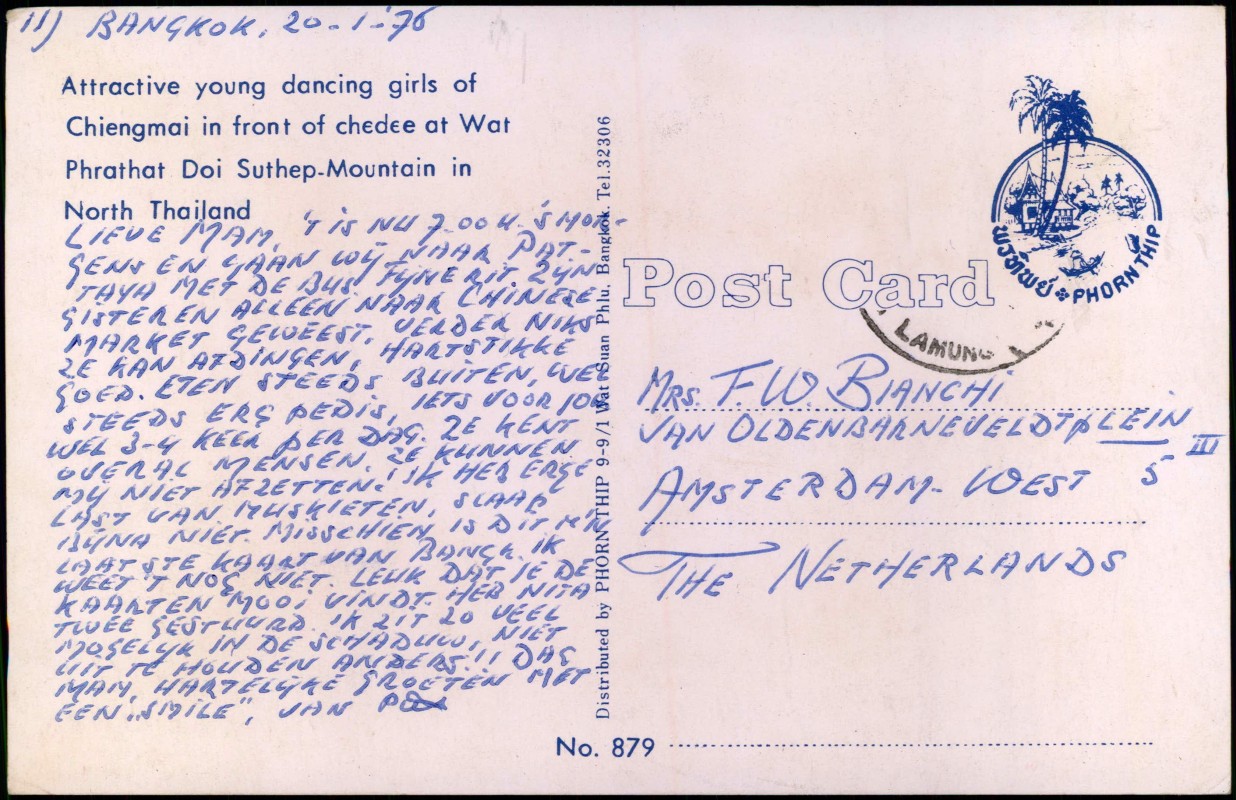 11) BANGKOK, 20-1-'76
Attractive young dancing girls of
Chiengmai in front of chedee at Wat
Phrathat Doi Suthep-Mountain in
North Thailand
LIEVE MAM, 'T IS NU 7.00 U. 'S MOR-
GENS EN GAAN WIJ NAAR PAT-
TAYA MET DE BUS FIJNE RIT. ZIJN
GISTEREN ALLEEN NAAR CHINESE
MARKET GEWEEST. VERDER NIKS
ZE KAN AFDINGEN, HARTSTIKKE
GOED. ETEN STEEDS BUITEN, WEL
STEEDS ERG PEDIS, IETS VOOR JOU
WEL 3-4 KEER PER DAG. ZE KENT
OVERAL MENSEN. ZE KUNNEN
MIJ NIET AFZETTEN! IK HEB ERGE
LAST VAN MUSKIETEN, SLAAP
BIJNA NIET. MISSCHIEN IS DIT M'N
LAATSTE KAART VAN BANGK. IK
WEET 'T NOG NIET. LEUK DAT JE DE
KAARTEN MOOI VINDT. HEB NITA
TWEE GESTUURD. IK ZIT ZO VEEL
MOGELIJK IN DE SCHADUW, NIET
UIT TE HOUDEN ANDERS!! DAG
MAM, HARTELIJKE GROETEN MET
EEN „SMILE", VAN
Distributed by PHORNTHIP 9-9/1 Wat Suan Phlu, Bangkok. Tel.32306
Post Card
พรทิพย์ PHORNTHIP
LAMUNG
MRS. F.W. BIANCHI
VAN OLDENBARNEVELDTPLEIN
5 III
AMSTERDAM-WEST
THE NETHERLANDS
No. 879